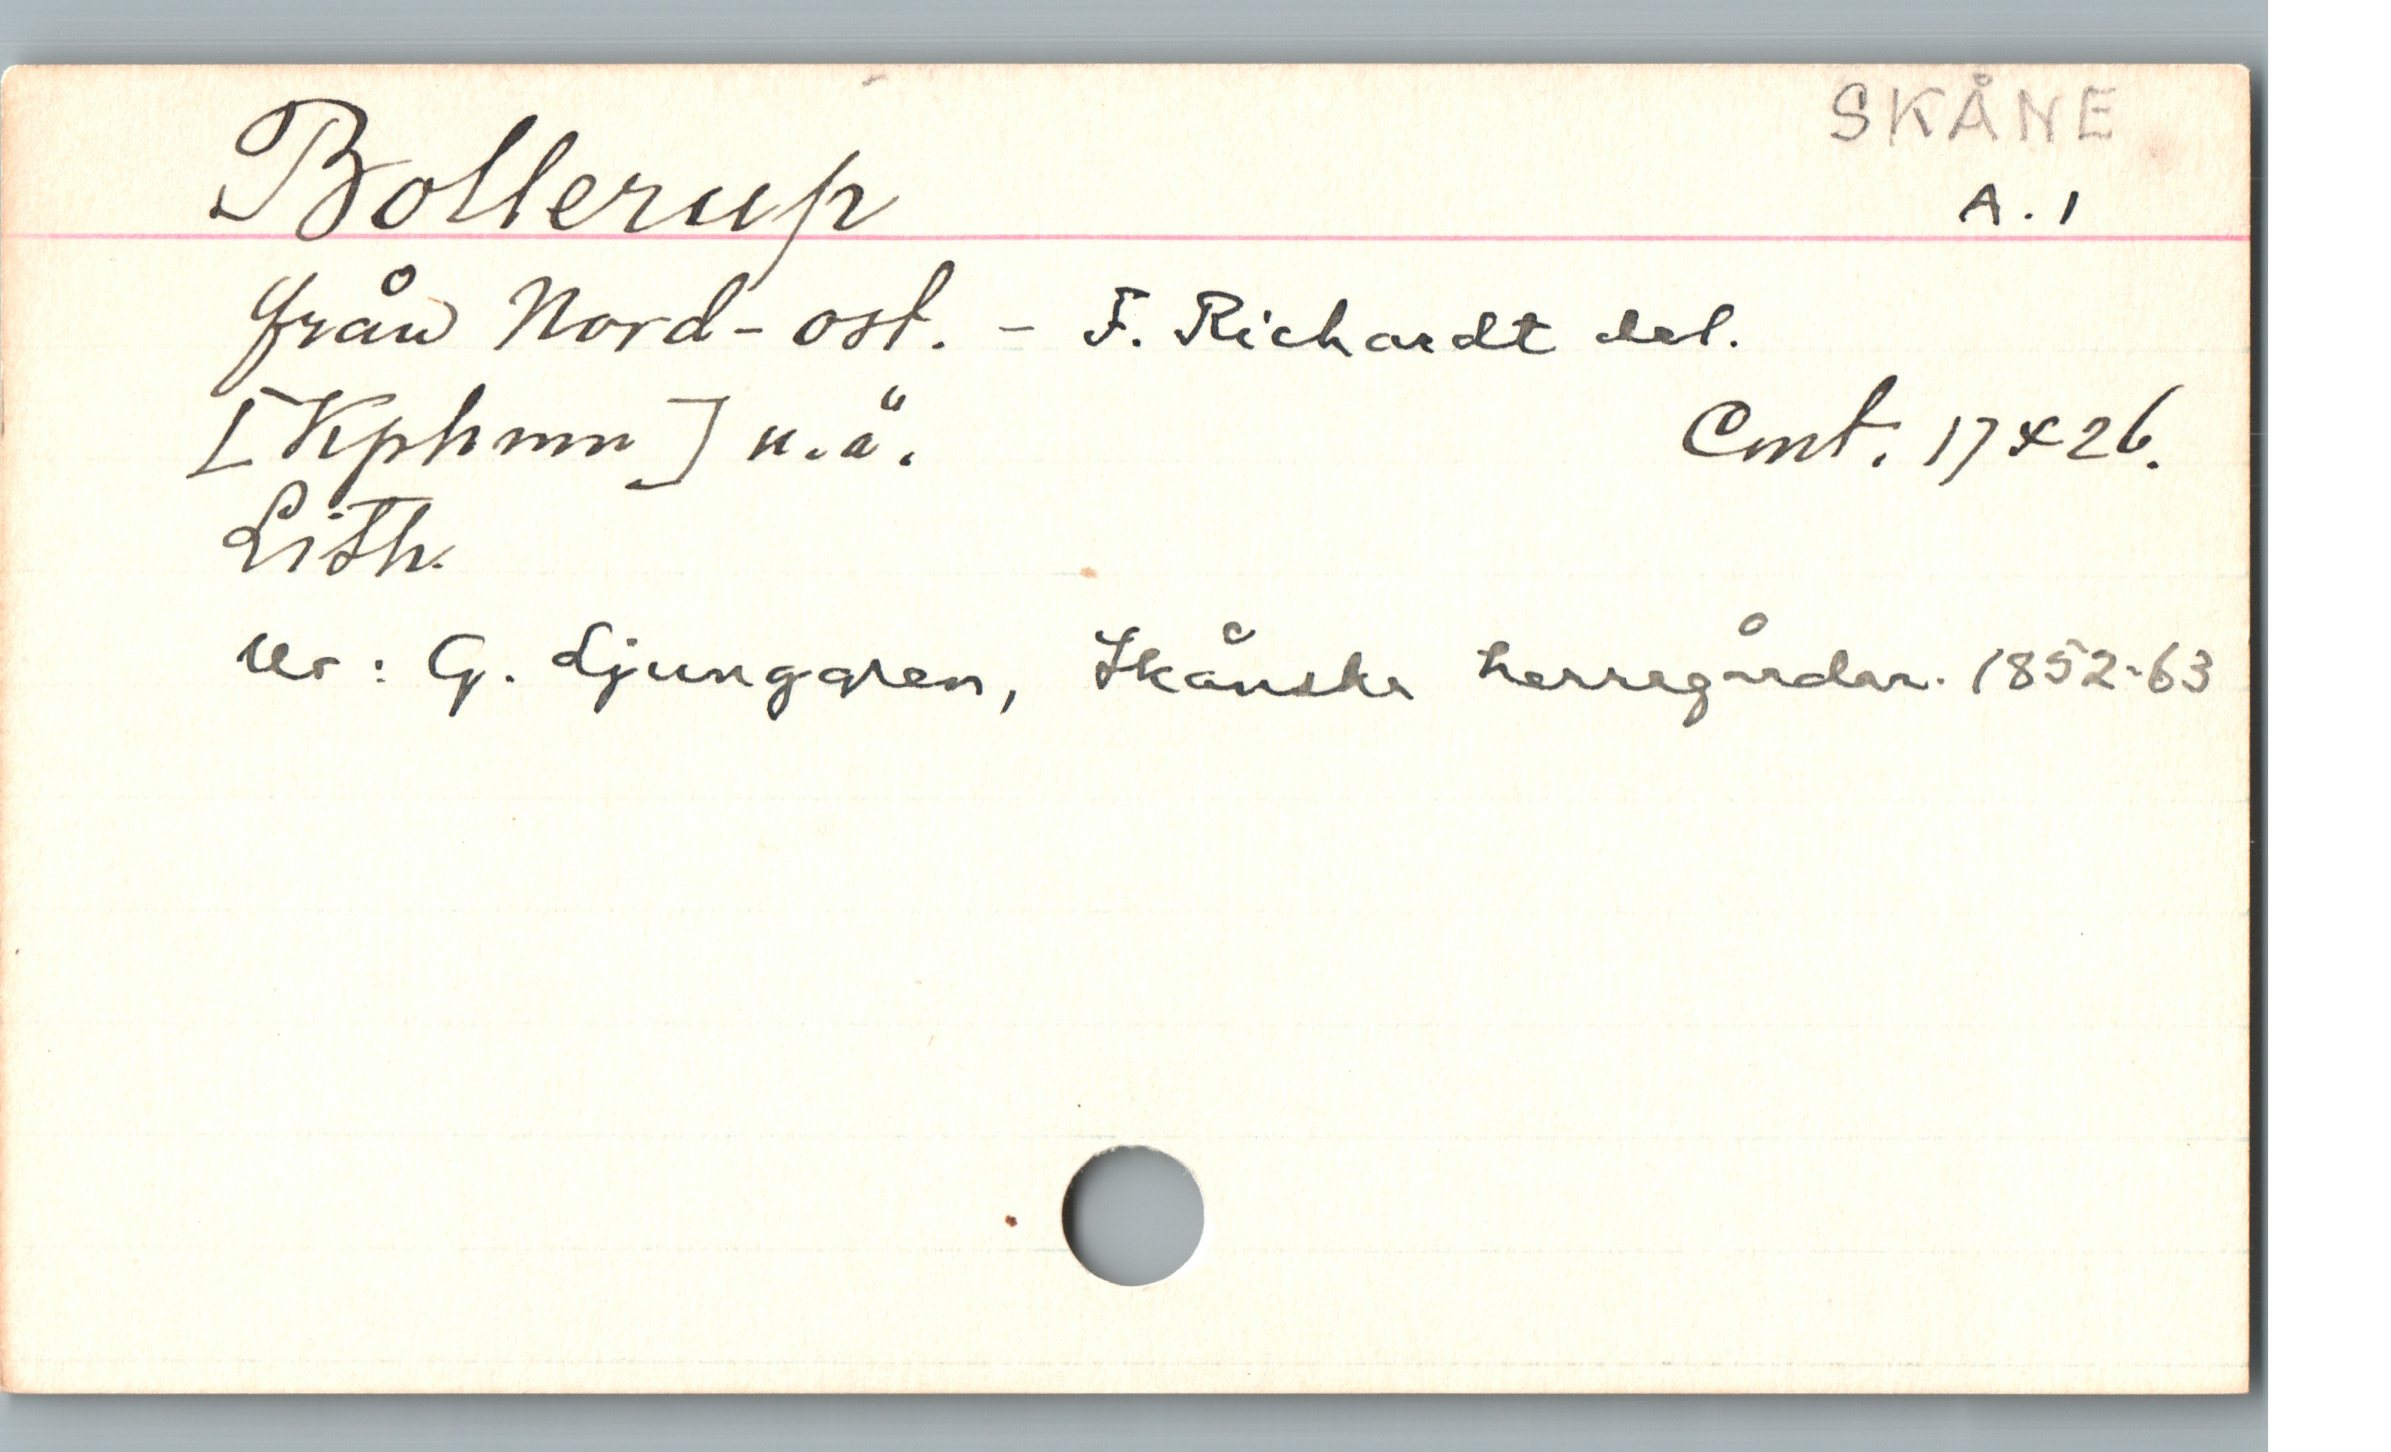 SKÅNE
Bollerup
A. 1
från Nord-ost. - F. Richardt del.
[Kphmn] u.ä. Cmt. 17 x 26.
Lith.
Ur: G. Ljunggren, Skånska herregårdar. 1852-63